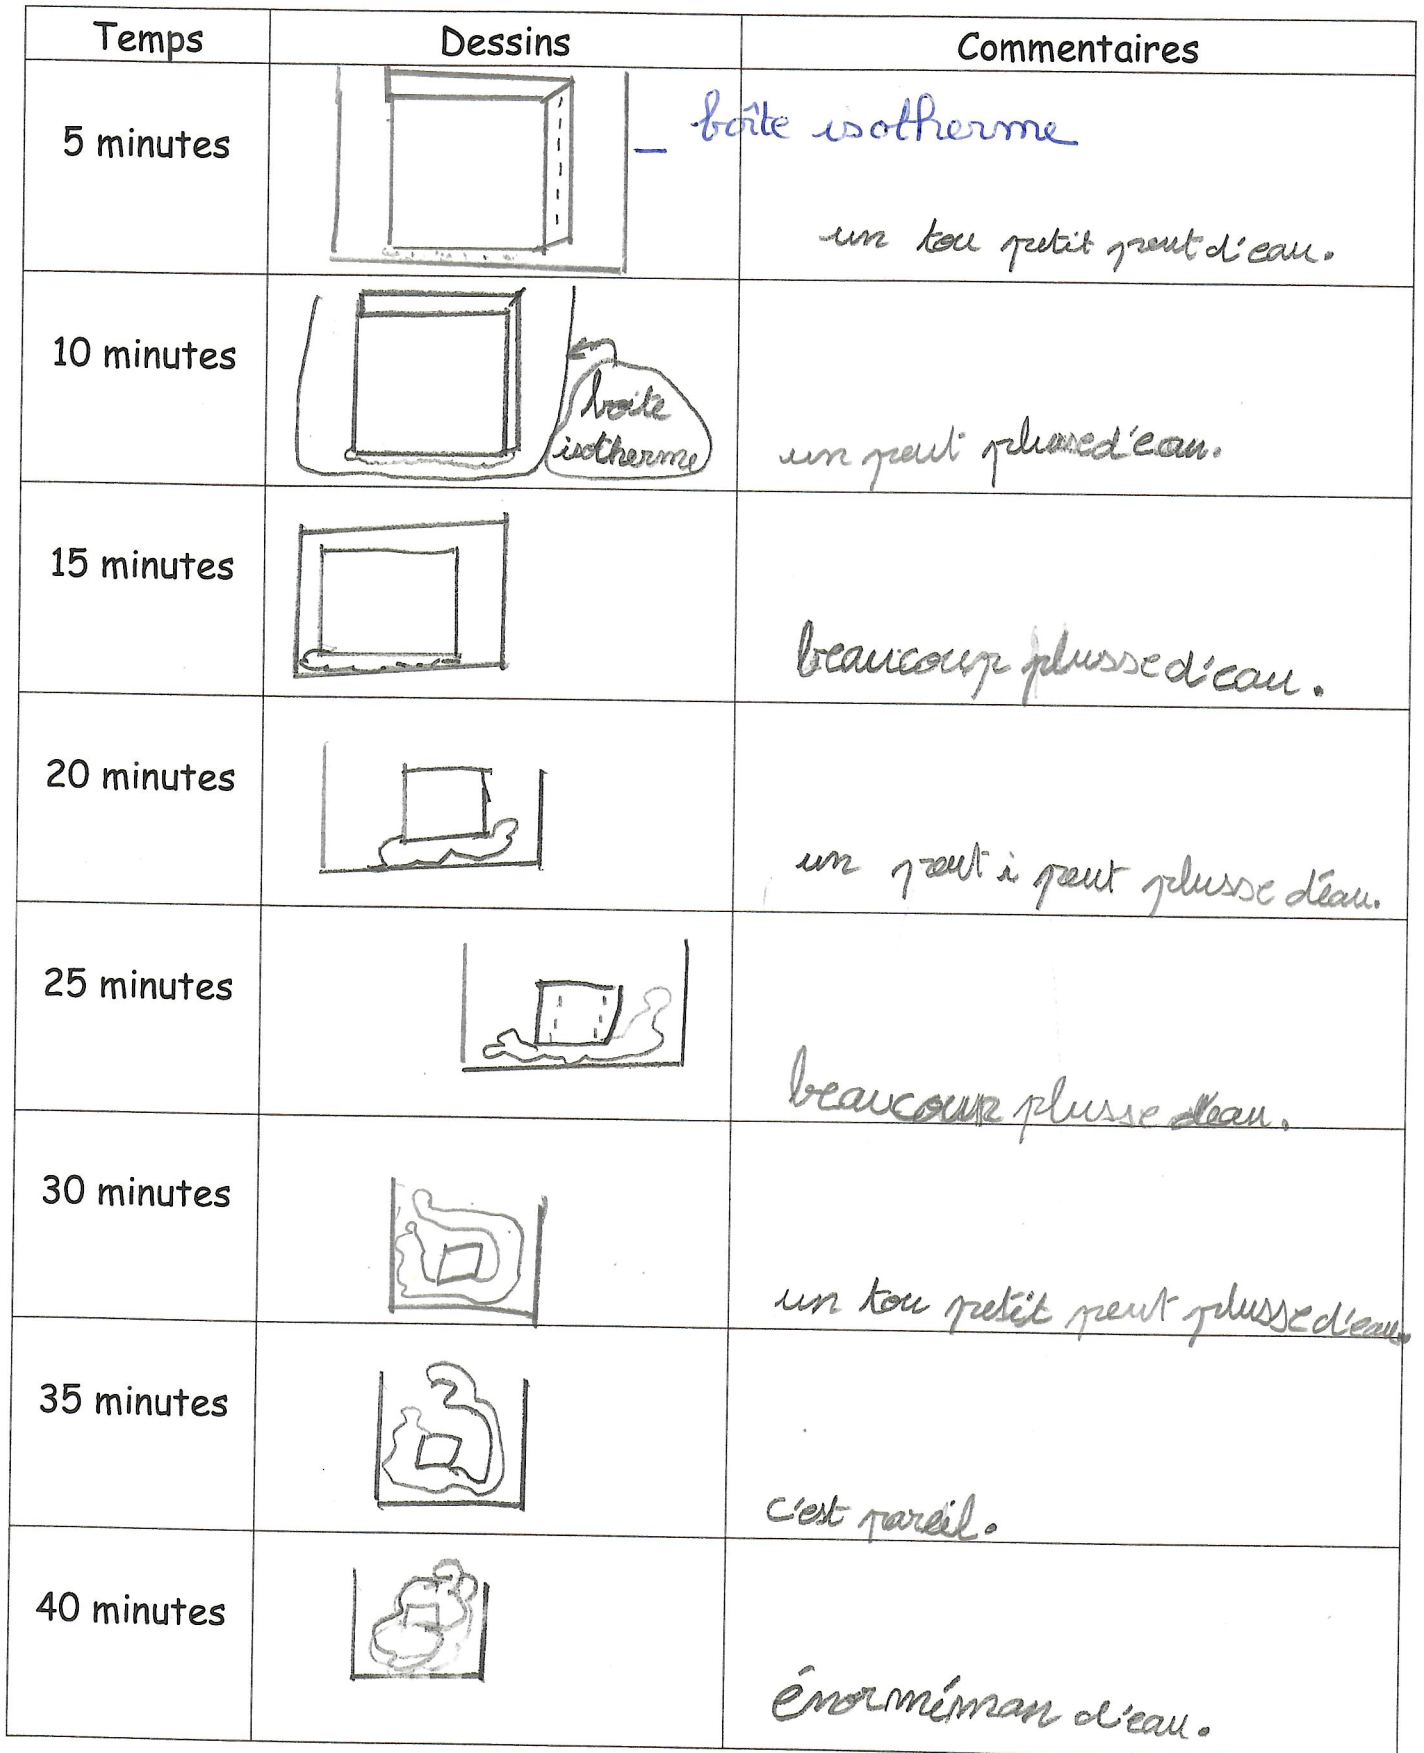 Temps Dessins Commentaires
5 minutes
boîte isotherme
un tou petit peut d'eau.
10 minutes
boite
isotherme
un peut plusse d'eau.
15 minutes
beaucoup plusse d'eau.
20 minutes
un peut i peut plusse d'éau.
25 minutes
beaucoup plusse d'eau.
30 minutes
un tou petit peut plusse d'eau.
35 minutes
c'est pareil.
40 minutes
énorméman d'eau.